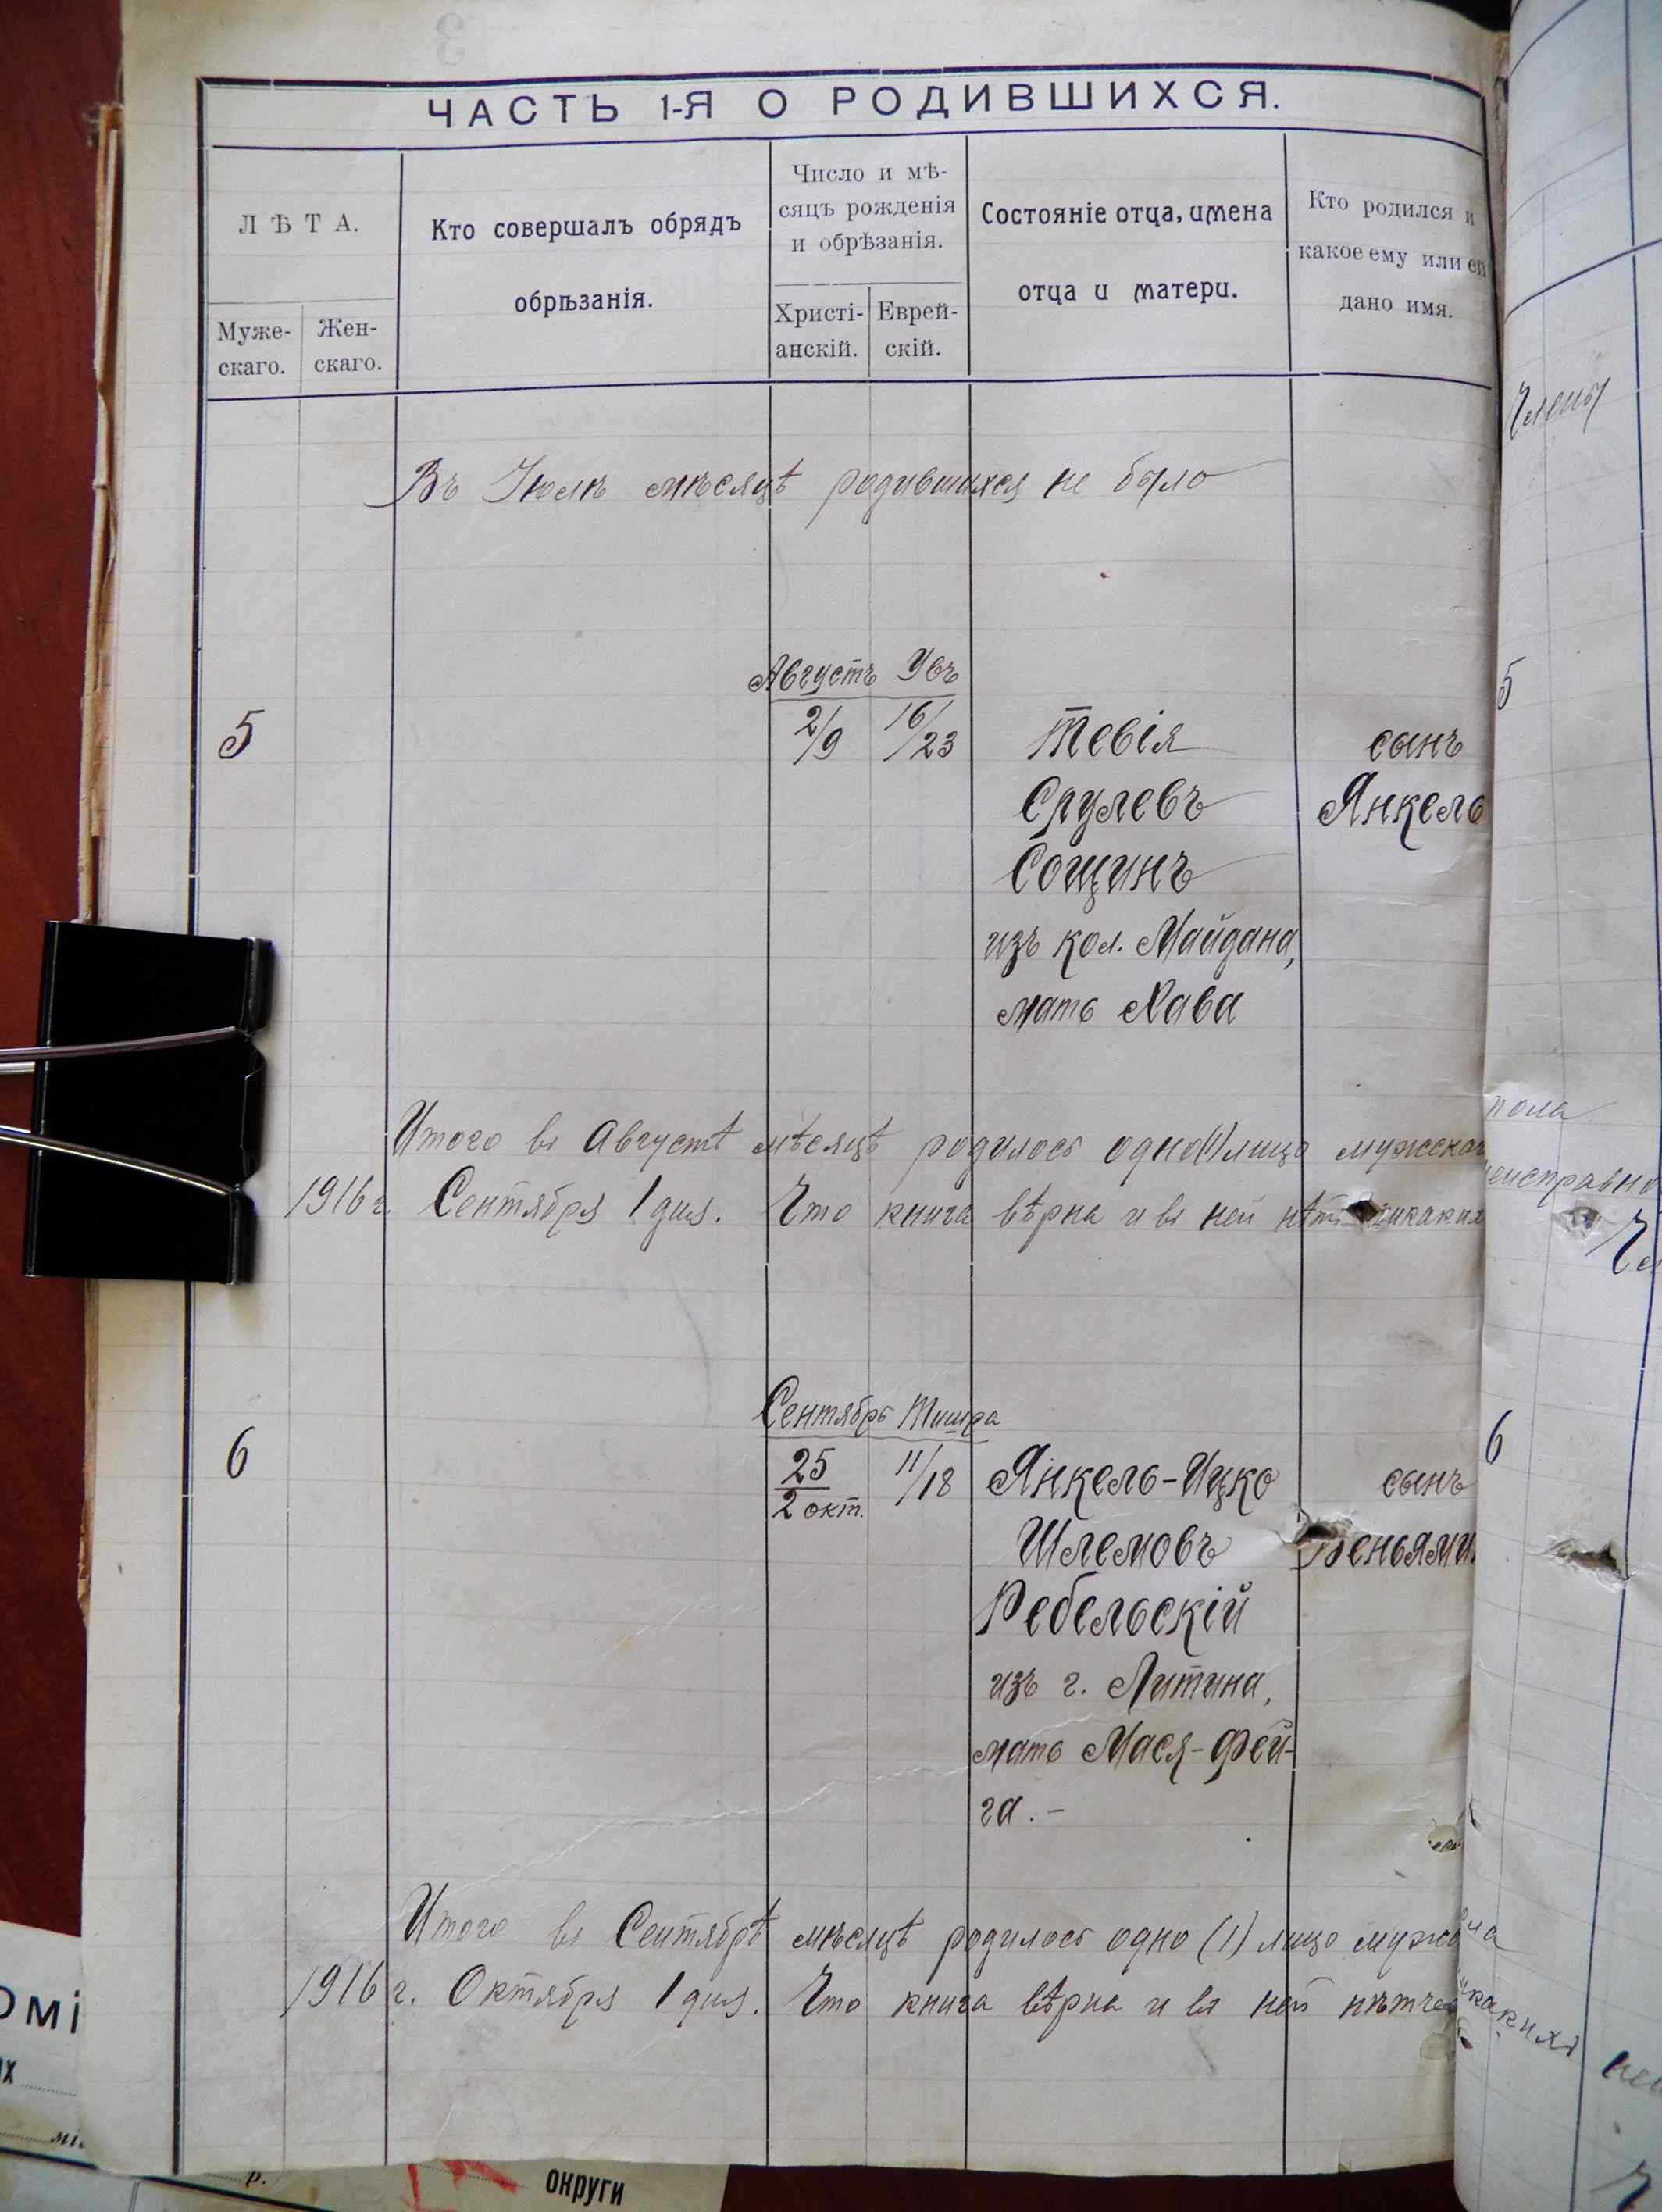 ЧАСТЬ 1-Я О РОДИВШИХСЯ.
ЛѢТА.
Муже-
скаго.
Жен-
скаго.
Кто совершалъ обрядъ
обрѣзанія.
Число и мѣ-
сяцъ рожденія
и обрѣзанія.
Христі-
анскій.
Еврей-
скій.
Состояніе отца, имена
отца и матери.
Кто родился и
какое ему или ей
дано имя.
Члены
Въ Іюлѣ мѣсяцѣ родившихся не было
Августъ
5 2/9 16/23 Тевія сынъ 5
Срулевъ Янкель
Сощинъ
изъ кол. Майдана,
мать Хава
Итого въ Августѣ мѣсяцѣ родилось одно (1) лицо мужскаго пола
1916 г. Сентября 1 дня. Что книга вѣрна и въ ней нѣтъ никакихъ неисправно
Сентябрь Тишра
6 25/2 окт. 11/18 Янкель-Ицко сынъ 6
Шлемовъ Беньямин
Ребельскій
изъ г. Литина,
мать Мася-Фей-
га.-
Итого въ Сентябрѣ мѣсяцѣ родилось одно (1) лицо
1916 г. Октября 1 дня. Что книга вѣрна и въ ней
омі
х
мі.
р.
округи